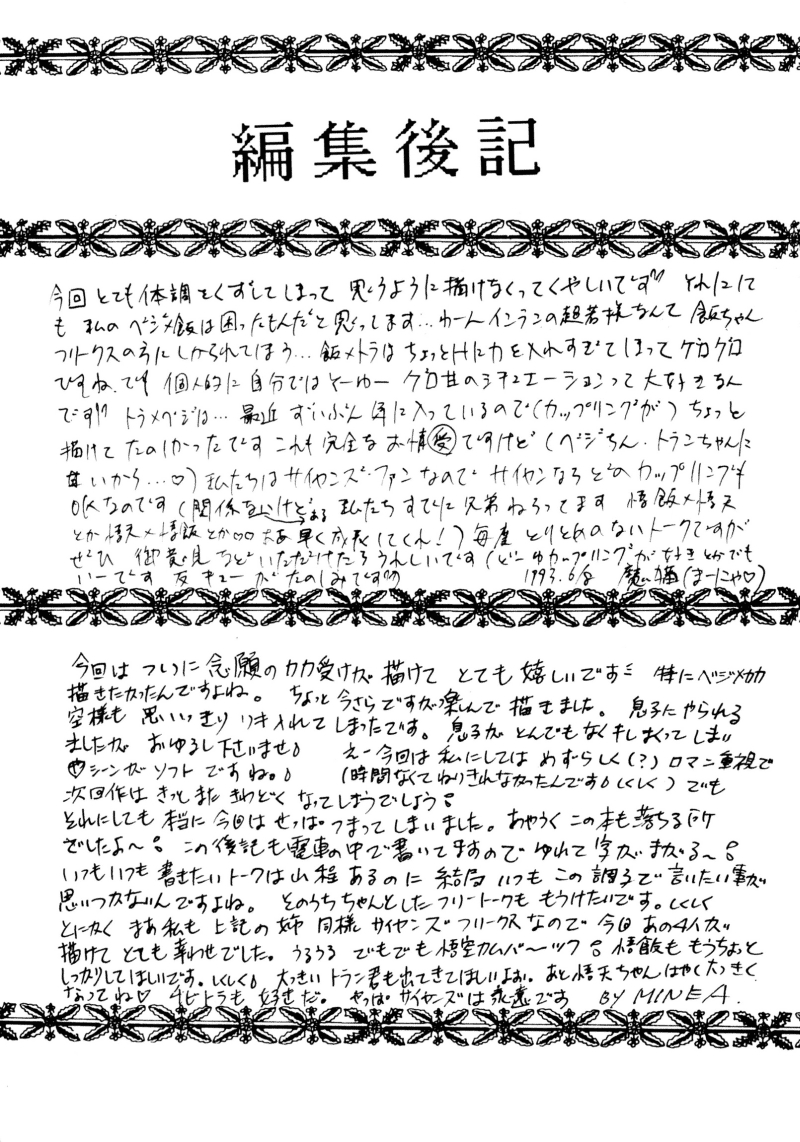 編集後記
今回 とても体調をくずしてしまって 思うように描けなくってくやしいです それにして
も 私の ベジ×飯は困ったもんだと思ってします…
フリークスの方に しかられてしまう… 飯×トラは ちょっとHに力を入れすぎてしまって ゲロゲロ
ですね。でも 個人的に 自分では そーゆー ゲロ甘のシチュエーションって 大好きなん
です!! トラ×ベジは… 最近 ずいぶん 気に入っているので(カップリングが) ちょっと
描けて たのしかったです これも 完全な お情受ですけど (ベジちん・トランちゃんに
甘いから…♡) 私たちは サイヤンズ・ファン なので サイヤンなら どのカップリングも
OKなのです (関係ないけど 私たち すでに 兄弟ねらってます 悟飯×悟天
とか 悟天×悟飯とか♡♡ 早く成長してくれ!) 毎度 とりとめのないトークですが
ぜひ 御意見などいただけたら うれしいです (どーゆカップリングが好き とかでも
いーです 1993.6/8 (まーにゃ♡)
今回は ついに 念願の カカ受けが 描けて とても 嬉しいです 特に ベジ×カカ
描きたかったんですよね。 ちょっと 今さらですが 楽しんで 描きました。 息子に やられる
空様も 思いっきり いき入れて しまったです。 息子が とんでもなく してしまい
ましたが おゆるし下さいませ えー今回は 私にしては めずらしく(?) ロマン重視で
シーンが ソフト ですね。 (時間なくて ねりきれなかったんです しくしく) でも
次回作は きっと また きわどく なってしまうでしょう
それにしても 本当に 今回は せっぱ つまって しまいました。 あやうく この本も 落ちる所
でしたよ〜 この後記も 電車の中で 書いてますので ゆれて 字が まがる〜
いつもいつも 書きたい トークは 山程 あるのに 結局 いつも この調子で 言いたい事が
思いつかないんですよね。 そのうち ちゃんとした フリートークも もうけたいです。しくしく
とにかく まあ 私も 上記の 姉 同様 サイヤンズ フリークス なので 今回 あの4人が
描けて とても 幸わせでした。 うるうる でもでも 悟空カムバ〜ック 悟飯も もうちょっと
しっかりしてほしいです。しくしく 大っきい トラン君も 出てきてほしいよお。 あと 悟天ちゃん はやく大っきく
なってね♡ チビトラも 好きだ。 やっぱ サイヤンズは 永遠です BY MINEA.